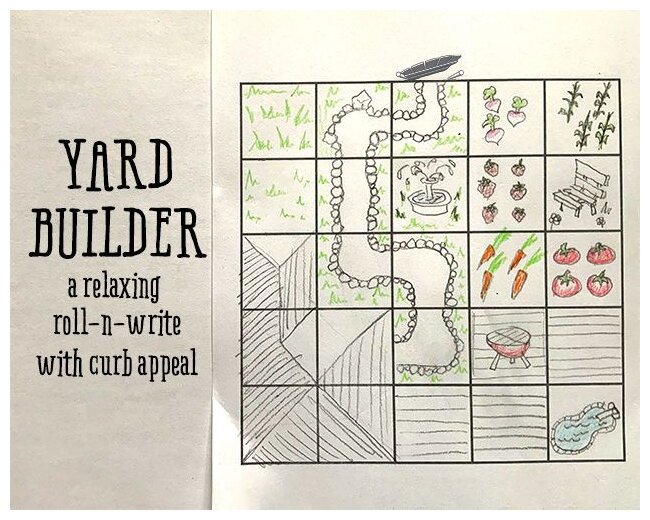 YARD
BUILDER
a relaxing
roll-n-write
with curb appeal